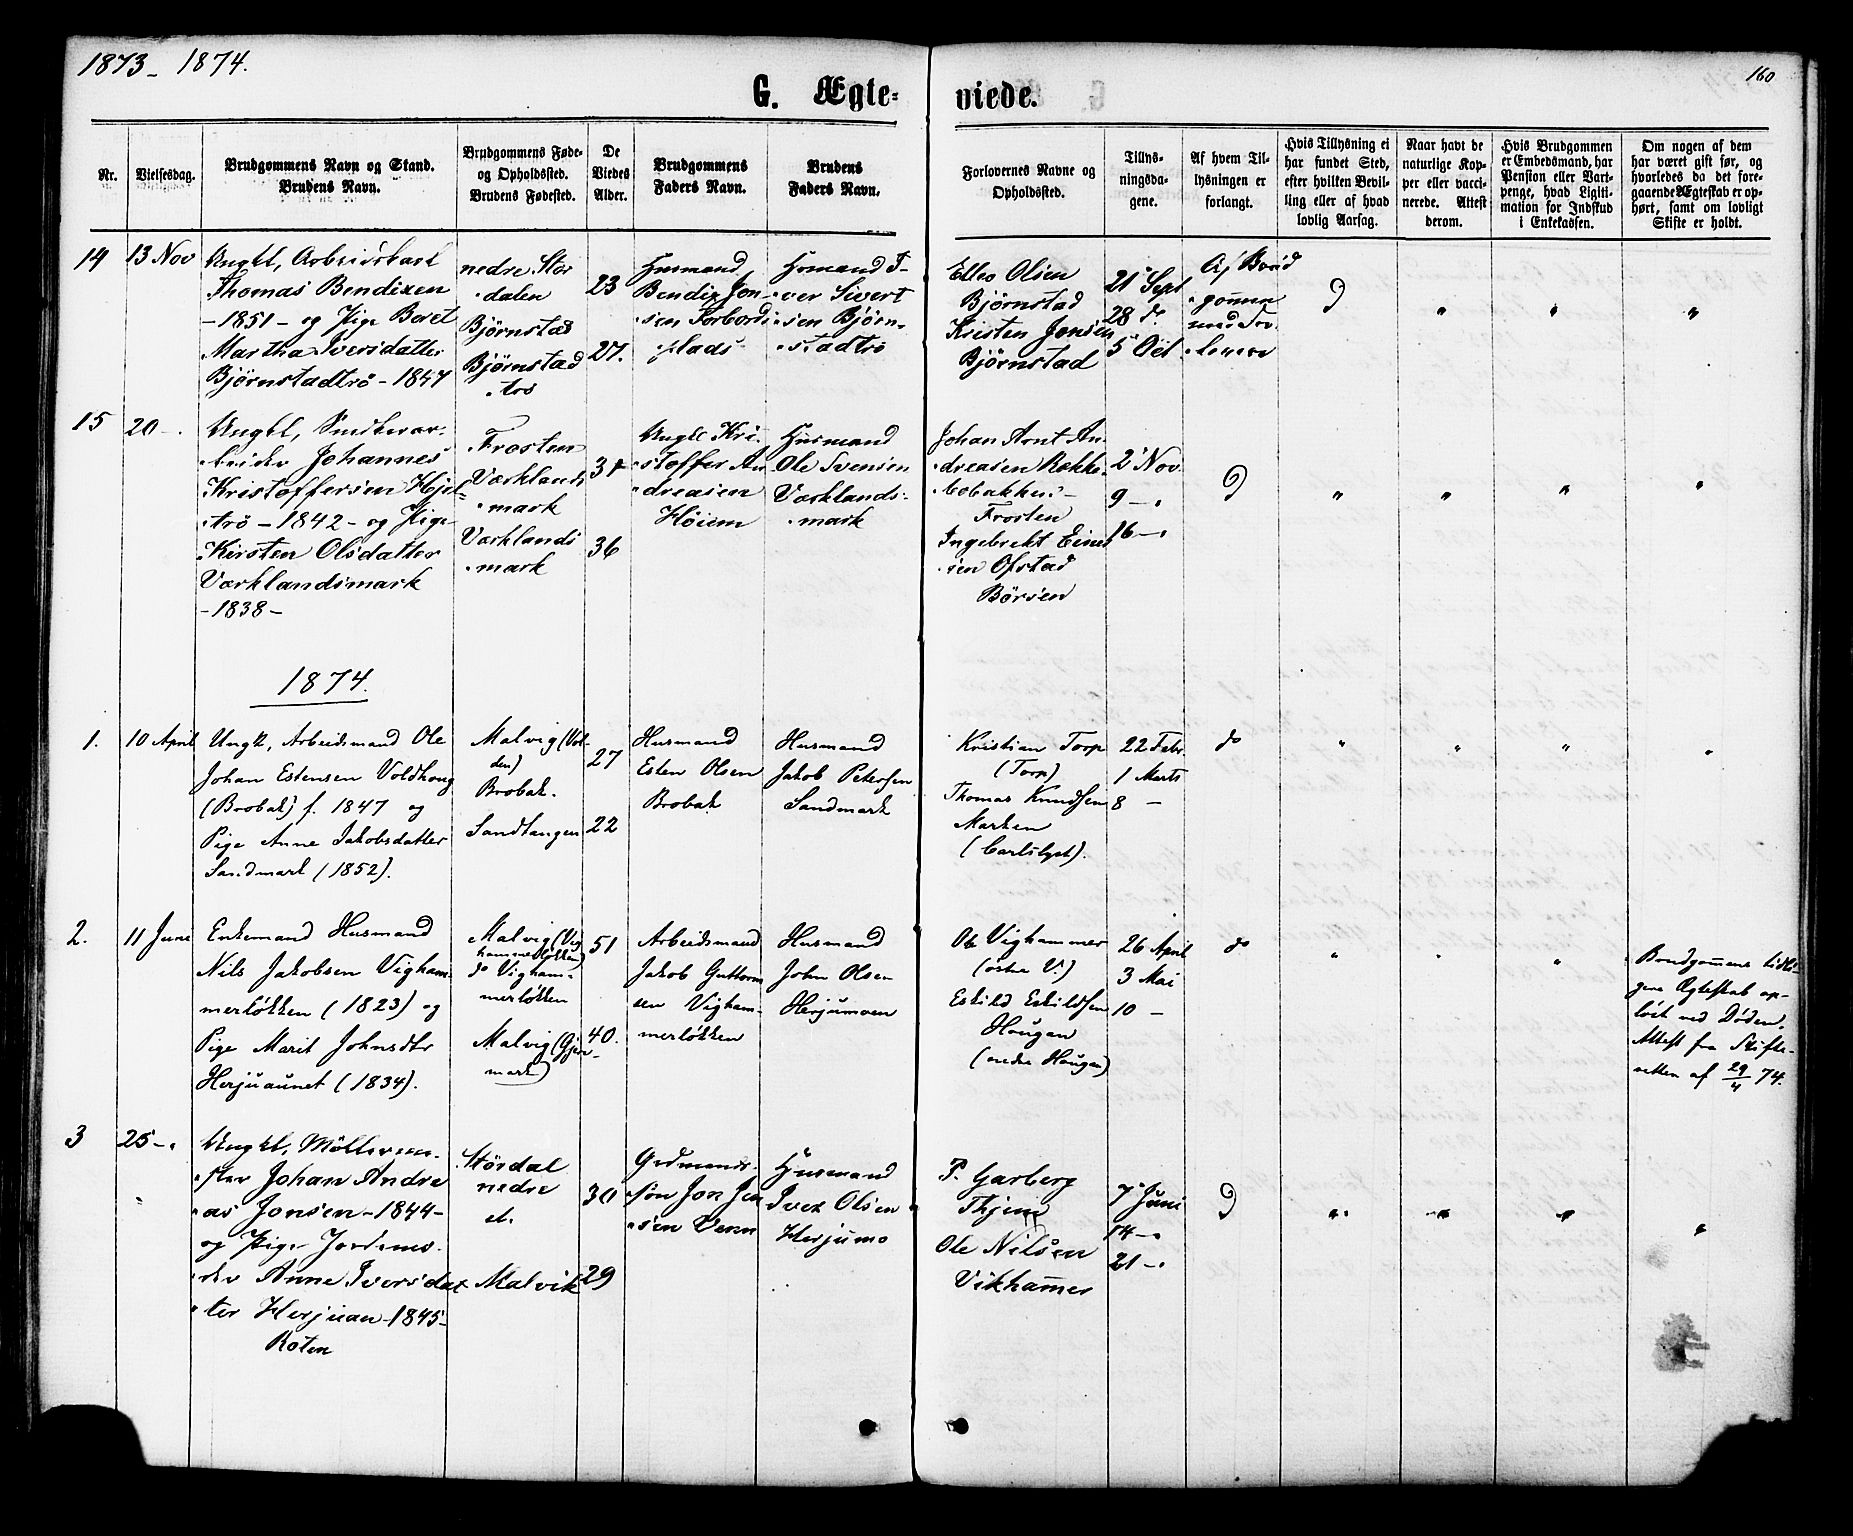 1873 - 1874.
160
G. Ægte-
viede.
Nr.
Vielsesdag.
Brudgommens Navn og Stand.
Brudens Navn.
Brudgommens Føde-
og Opholdssted.
Brudens Fødested.
De
Viedes
Alder.
Brudgommens
Faders Navn.
Brudens
Faders Navn.
Forlovernes Navne og
Opholdssted.
Tillys-
ningsda-
gene.
Af hvem Til-
lysningen er
forlangt.
Hvis Tillysning ei
har fundet Sted,
efter hvilken Bevil-
ling eller af hvad
lovlig Aarsag.
Naar havt de
naturlige Kop-
per eller vacci-
nerede. Attest
derom.
Hvis Brudgommen
er Embedsmand, har
Pension eller Vart-
penge, hvad Ligiti-
mation for Indskud
i Enkekassen.
Om nogen af dem
har været gift før, og
hvorledes da det fore-
gaaende Ægteskab er op-
hørt, samt om lovligt
Skifte er holdt.
14
13 Nov
Ungkl, Arbeidskarl
Thomas Bendixen
- 1851 - og Pige Beret
Martha Iversdatter
Bjørnstadtrø - 1847
nedre Stør
dalen
Bjørnstad
Bjørnstad
trø
23
27.
Husmand
Bendix Jon-
sen Forbord
plads
Husmand I-
ver Sivert
sen Bjørn-
stadtrø
Olsen
Bjørnstad
Kristen Jonsen
Bjørnstad
21 Sept
28 do.
5 Oct
Af Brud
gommen
med For
lovere
15
20 -.
Ungkl,
Johannes
Kristoffersen Hjel-
trø - 1842 - og Pige
Kirsten Olsdatter
Værklandsmark
- 1838 -
Frosten
Værklands
mark
Værklands
mark
31
36
Ungkl Kri-
stoffer An
dreasen
Høiem
Husmand
Ole Svensen
Værklands-
mark
Johan Arnt An-
dreasen
Frosten
Ingebrekt Einer
sen Ofstad
Børsen
2 Nov.
9 -.
16 -.
1874.
1.
10 April
Ungk, Arbeidsmand Ole
Johan Estensen Voldhoug
(Brobak) f. 1847 og
Pige Anne Jakobsdatter
Sandmark (1852).
Malvig (Vol-
den)
Brobak.
Sandtangen
27
22
Husmand
Esten Olsen
Brobak
Husmand
Jakob Petersen
Sandmark
Kristian Torp
(Torp)
Thomas Knudsen
Marken
(Carlslyst).
22 Febr.
1 Marts
8 -
do
2.
11 June
Enkemand Husmand
Nils Jakobsen Vigham-
merløkken (1823) og
Pige Marit Johnsdtr
Herjuaunet (1834).
Malvig (Vig
hammerløkken)
do Vigham-
merløkken
Malvig (Gjen-
mark)
51
40.
Arbeidsmand
Jakob Guttorm
sen Vigham-
merløkken
Husmand
John Olsen
Herjumoen
Ole Vighammer
(østre V.)
Eskild Eskildsen
Hougan
(nedre Hougan)
26 April
3 Mai
10 -
do
Brudgommens tidli-
gere Ægteskab op-
løst ved Døden.
Attest fra Skifte-
retten af 29/4 74.
3
25 -.
Ungkl, Møllerem-
ster Johan Andre
as Jonsen - 1844 -
og Pige Jordemo-
der Anne Iversdat
ter Herjuan - 1845 -
Roten
Størdal
nedre
Malvik
30
29
Gedmand-
søn Jon Jen
sen Venn
Husmand
Iver Olsen
Herjumo
P. Garberg
Ole Nilsen
Vikhammer
7 Juni
14 -.
21 -.